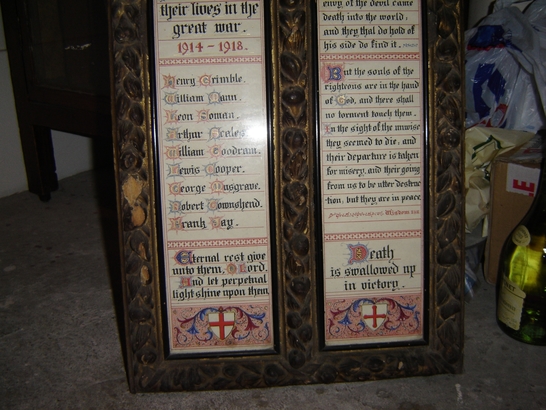 their lives in the
great war.
1914 - 1918.
Henry Trimble.
William Mann.
Leon Zoman.
Arthur Neales.
William Goodram.
Lewis Cooper.
George Musgrave.
Robert Townshend.
Frank Day.
Eternal rest give
unto them, O Lord.
And let perpetual
light shine upon them
envy of the devil came
death into the world;
and they that do hold of
his side do find it.
But the souls of the
righteous are in the hand
of God, and there shall
no torment touch them.
In the sight of the unwise
they seemed to die; and
their departure is taken
for misery, and their going
from us to be utter destruc
tion, but they are in peace
Wisdom
Death
is swallowed up
in victory.